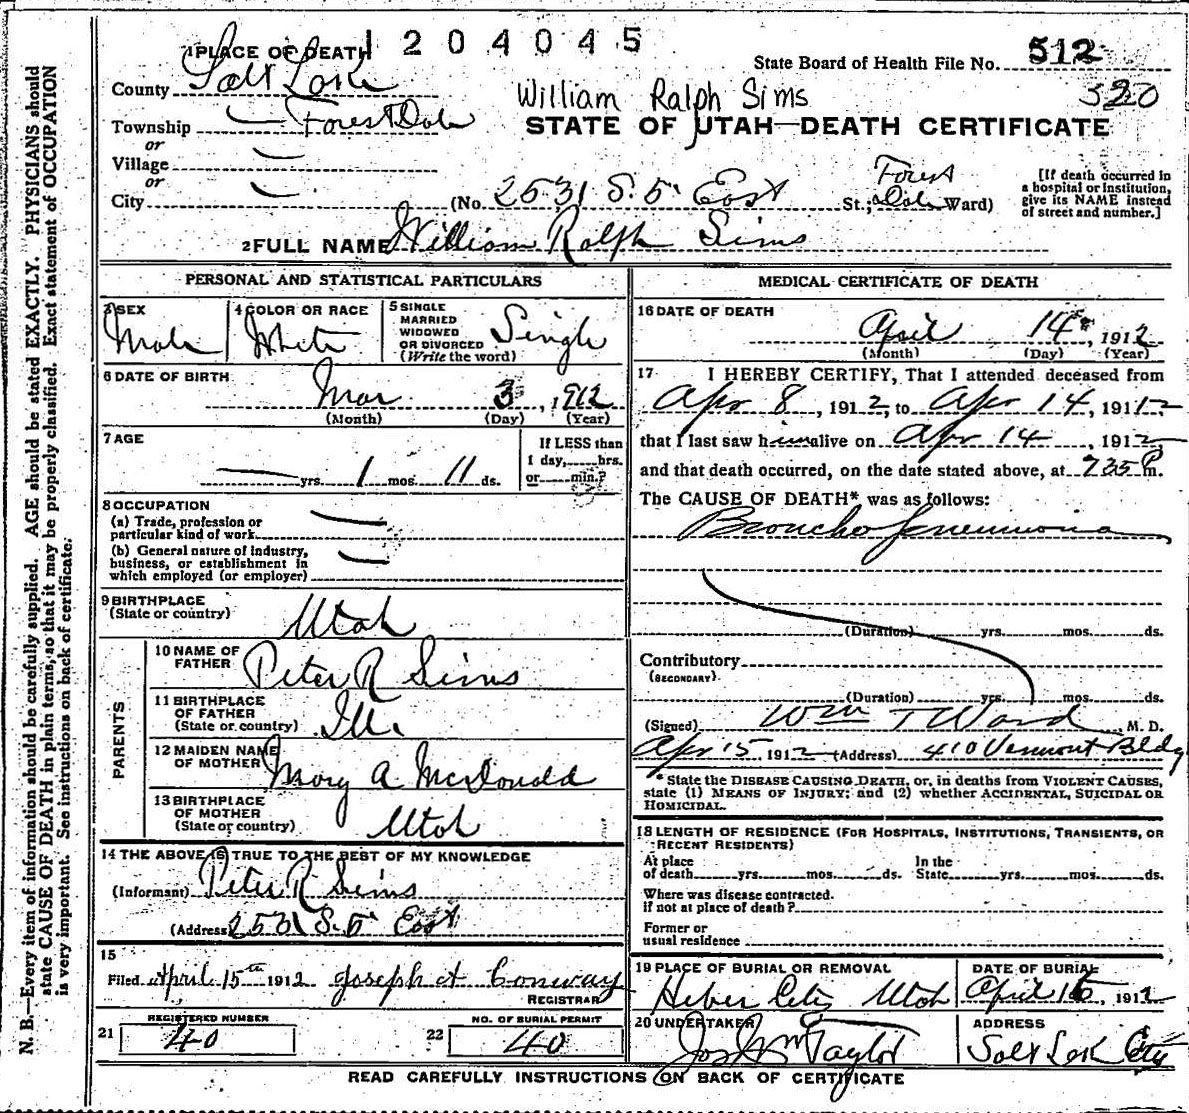 1 PLACE OF DEATH 1 2 0 4 0 4 5
State Board of Health File No. 512
County Salt Lake
William Ralph Sims 520
Township Forest Dale
or
STATE OF UTAH—DEATH CERTIFICATE
Village
or
City (No. 2531 S. 5 East St.; Forest Dale Ward)
[If death occurred in
a hospital or institution,
give its NAME instead
of street and number.]
2 FULL NAME William Ralph Sims
PERSONAL AND STATISTICAL PARTICULARS
3 SEX
Male
4 COLOR OR RACE
White
5 SINGLE
MARRIED
WIDOWED
OR DIVORCED
(Write the word)
Single
6 DATE OF BIRTH
Mar 3, 1912
(Month) (Day) (Year)
7 AGE
yrs. 1 mos. 11 ds.
If LESS than
1 day, hrs.
or min.?
8 OCCUPATION
(a) Trade, profession or
particular kind of work
(b) General nature of industry,
business, or establishment in
which employed (or employer)
9 BIRTHPLACE
(State or country)
Utah
PARENTS
10 NAME OF
FATHER
Peter R Sims
11 BIRTHPLACE
OF FATHER
(State or country)
Ill.
12 MAIDEN NAME
OF MOTHER
Mary A McDonald
13 BIRTHPLACE
OF MOTHER
(State or country)
Utah
14 THE ABOVE IS TRUE TO THE BEST OF MY KNOWLEDGE
(Informant) Peter R Sims
(Address) 2531 S. 5 East
15
Filed April 15th 1912 Joseph A Conway
REGISTRAR
REGISTERED NUMBER
21 40
NO. OF BURIAL PERMIT
22 40
MEDICAL CERTIFICATE OF DEATH
16 DATE OF DEATH
April 14, 1912
(Month) (Day) (Year)
17 I HEREBY CERTIFY, That I attended deceased from
Apr 8, 1912, to Apr 14, 1912
that I last saw him alive on Apr 14, 1912
and that death occurred, on the date stated above, at 735 P m.
The CAUSE OF DEATH* was as follows:
Broncho pneumonia
(Duration) yrs. mos. ds.
Contributory
(SECONDARY)
(Duration) yrs. mos. ds.
(Signed) Wm T Ward M. D.
Apr 15 1912 (Address) 410 Vermont Bldg
* State the DISEASE CAUSING DEATH, or, in deaths from VIOLENT CAUSES,
state (1) MEANS OF INJURY; and (2) whether ACCIDENTAL, SUICIDAL OR
HOMICIDAL.
18 LENGTH OF RESIDENCE (FOR HOSPITALS, INSTITUTIONS, TRANSIENTS, OR
RECENT RESIDENTS)
At place
of death yrs. mos. ds.
In the
State yrs. mos. ds.
Where was disease contracted.
if not at place of death?
Former or
usual residence
19 PLACE OF BURIAL OR REMOVAL
Heber City Utah
DATE OF BURIAL
April 16, 1912
20 UNDERTAKER
Jos Wm Taylor
ADDRESS
Salt Lake City
READ CAREFULLY INSTRUCTIONS ON BACK OF CERTIFICATE
N. B.—Every item of information should be carefully supplied. AGE should be stated EXACTLY. PHYSICIANS should
state CAUSE OF DEATH in plain terms, so that it may be properly classified. Exact statement of OCCUPATION
is very important. See instructions on back of certificate.